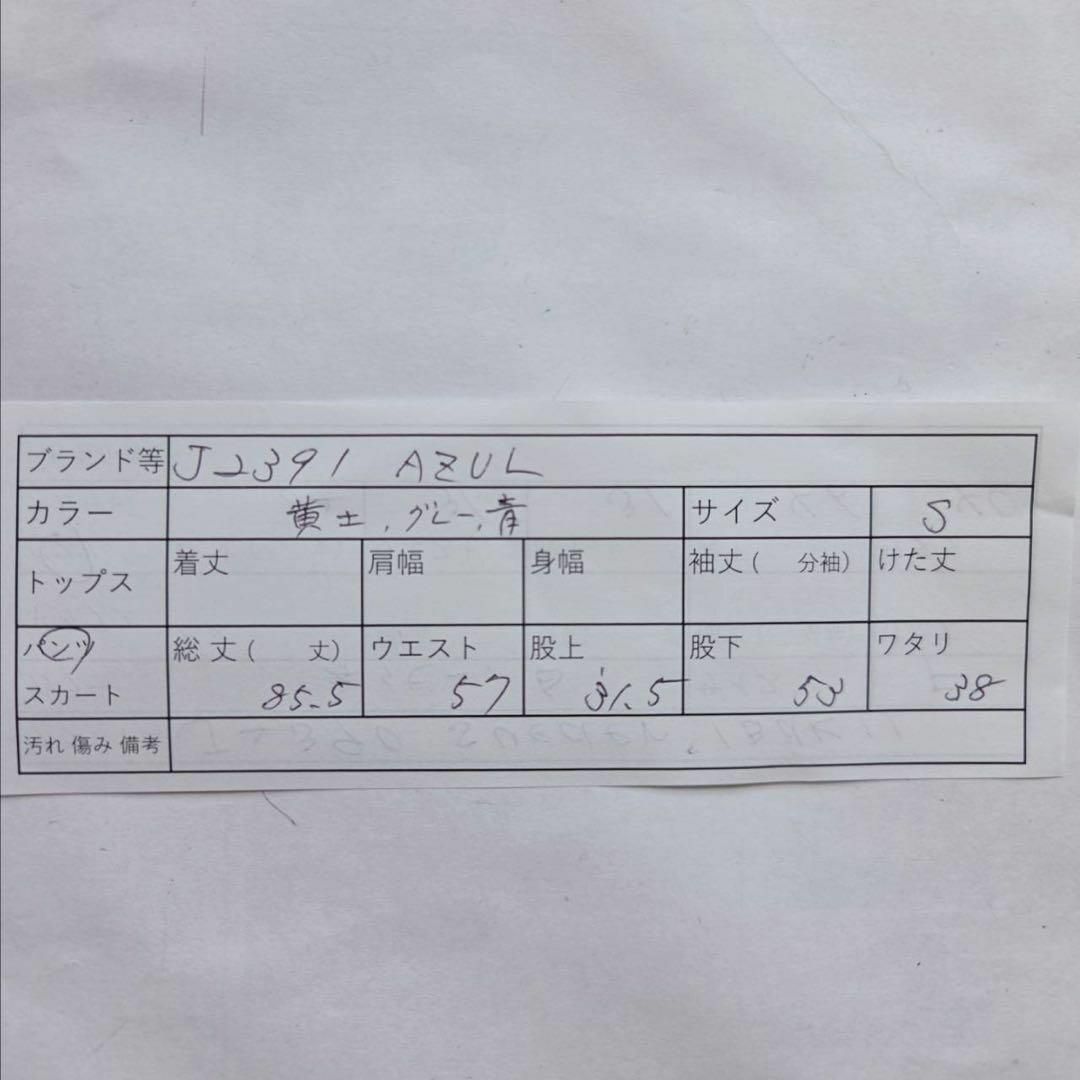 ブランド等 J2391 AZUL
カラー 黄土、グレー、青 サイズ S
トップス 着丈 肩幅 身幅 袖丈( 分袖) けた丈
パンツ 総丈( 丈) ウエスト 股上 股下 ワタリ
スカート 85.5 57 31.5 53 38
汚れ 傷み 備考